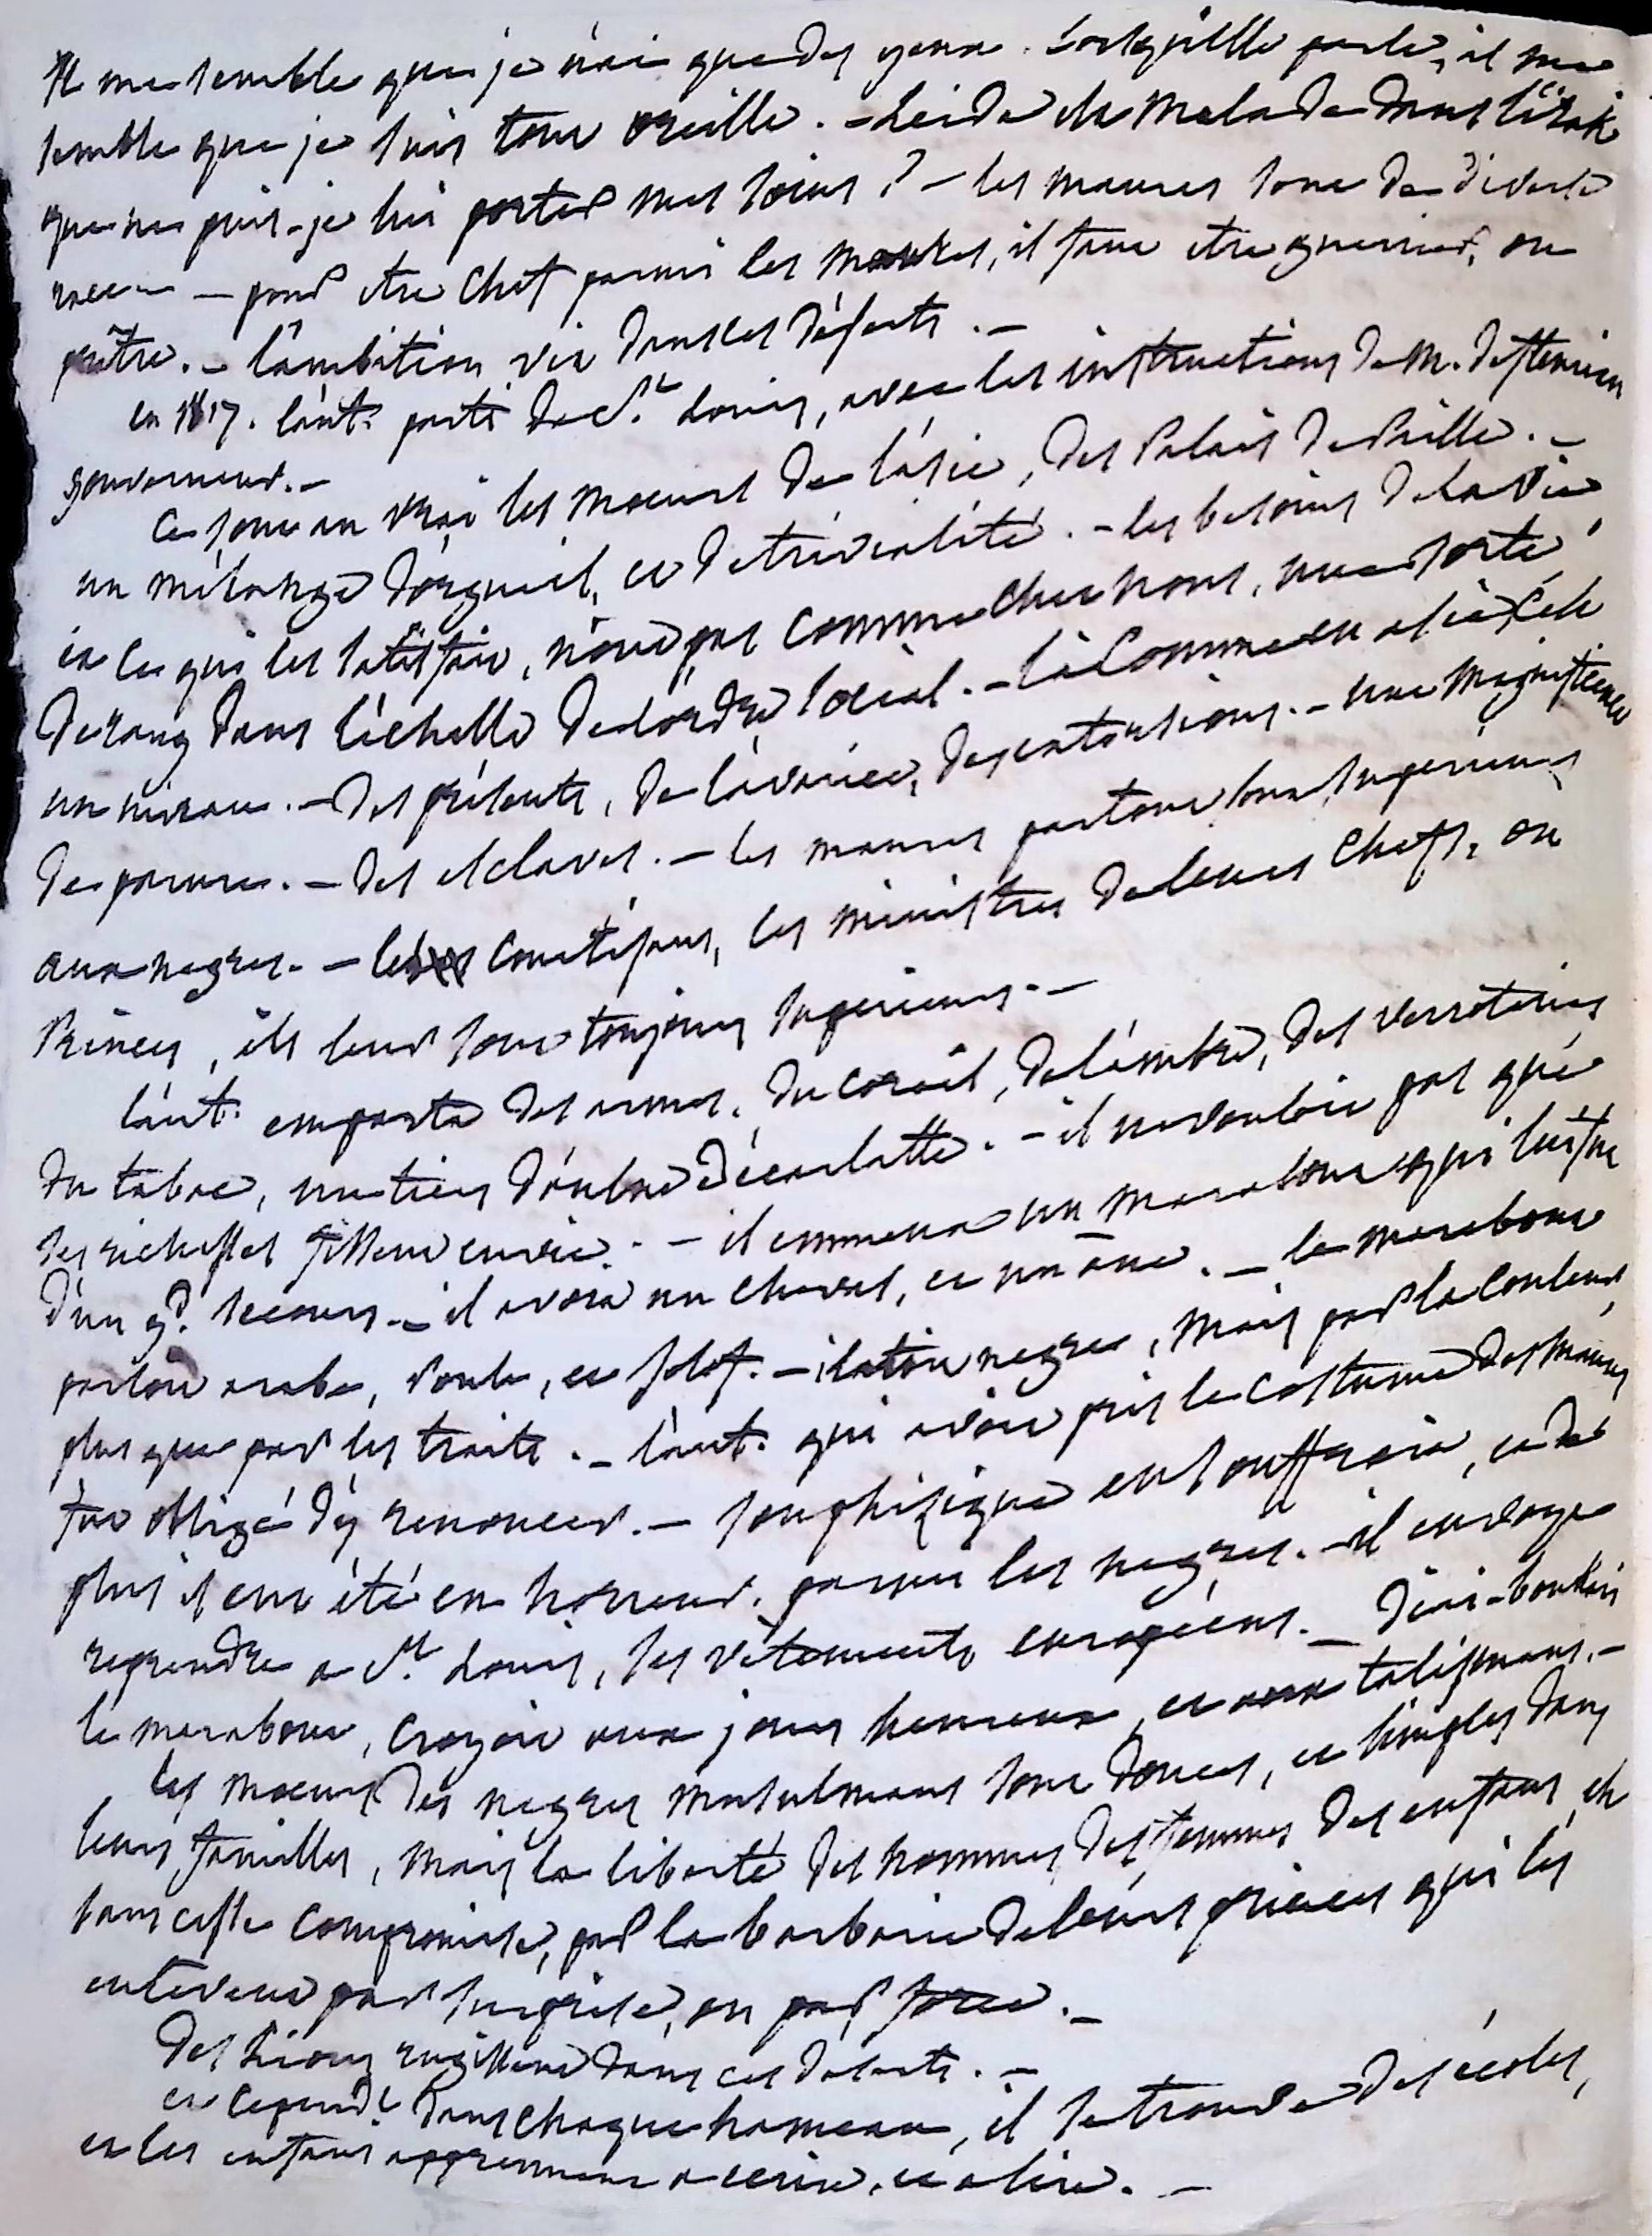 Il me semble que je n'ai que des yeux. Lorsqu'elle parle, il me
semble que je suis tout oreille. - Leïda est malade dans
que ne puis-je lui porter mes soins ? - les maures sont de diverses
races - pour etre chef parmi les maures, il faut etre guerrier, ou
prêtre. - l'ambition vit dans ces déserts. -
en 1817. l'aut. parti de St Louis, avec les instructions de M. de fleuriau
gouverneur. -
Ce sont au vrai les moeurs de l'asie, des Palais de Paille. -
un mélange d'orgueil, et de trivialité. - les besoins de la vie
et ce qui les satisfait, n'ont pas comme chez nous, une sorte
de rang dans l'échelle de l'ordre social. - la comme en asie c'est
un niveau. - des présents, de l'avarice, des extorsions. - une magnificence
de parure. - des esclaves. - les maures partout sont superieurs
aux negres. - les courtisans, les ministres de leurs chefs, ou
Princes, ils leur sont toujours superieurs. -
l'aut. emporta des armes, du corail, de l'ambre, des verroteries
du tabac, un tiers d'aulne d'écarlatte. - il ne vouloit pas que
ses richesses fissent envie. - il emmena un marabout qui lui fut
d'un gd. secours. - il avoit un cheval, et un âne. - le marabout
parloit arabe, Poule, et Jolof. - il étoit negre, mais par la couleur,
plus que par les traits. - l'aut. qui avoit pris le costume des maures
fut obligé d'y renoncer. - son phisique en souffroit, et de
plus il eut été en horreur, parmi les negres. - il envoya
reprendre a St Louis, ses vêtements européens. - Diai-boukari
le marabout, croyoit aux jours heureux, et aux talismans. -
les moeurs des negres musulmans sont douces, et simples dans
leurs familles, mais la liberté des hommes, des femmes des enfans, est
sans cesse compromise, par la barbarie de leurs princes qui les
enlevent par surprise, ou par force. -
des Lions rugissent dans ces déserts. -
et cependt dans chaque hameau, il se trouve des écoles,
et les enfans apprennent a ecrire, et a lire. -